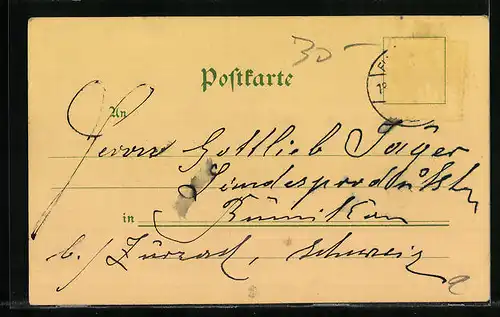 30 —
Postkarte
An
Herrn Gottlieb Jäger
Landesprodukte
in Rümikon
b. Zurzach, Schweiz